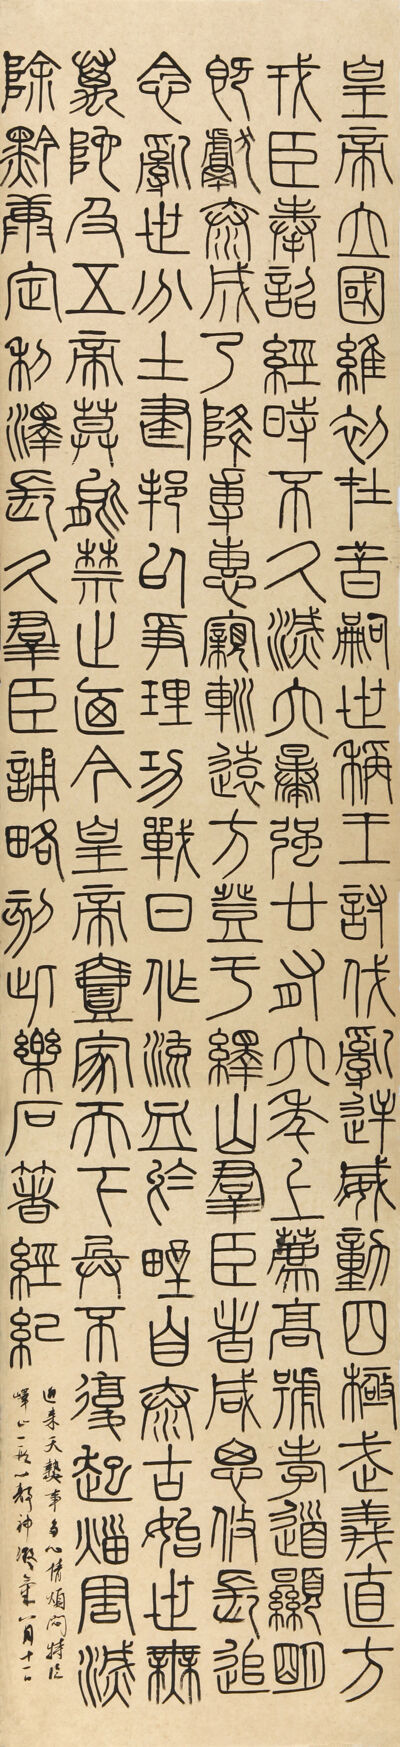 皇帝立國維初在昔嗣世稱王討伐亂逆威動四極武義直方
戎臣奉詔經時不久滅六暴强廿有六年上薦高號孝道顯明
既獻泰成乃降專惠親巡遠方登于繹山羣臣者咸思攸長追
念亂世分土建邦以爭理功戰日作流血於野自泰古始世無
萬陀及五帝莫能禁止迺今皇帝壹家天下兵不復起災周滅
除黔康定利澤長久羣臣誦略刻此樂石著經紀
近来天熱事多心情煩悶特臨
嶧山一以静神凝氣八月十一日